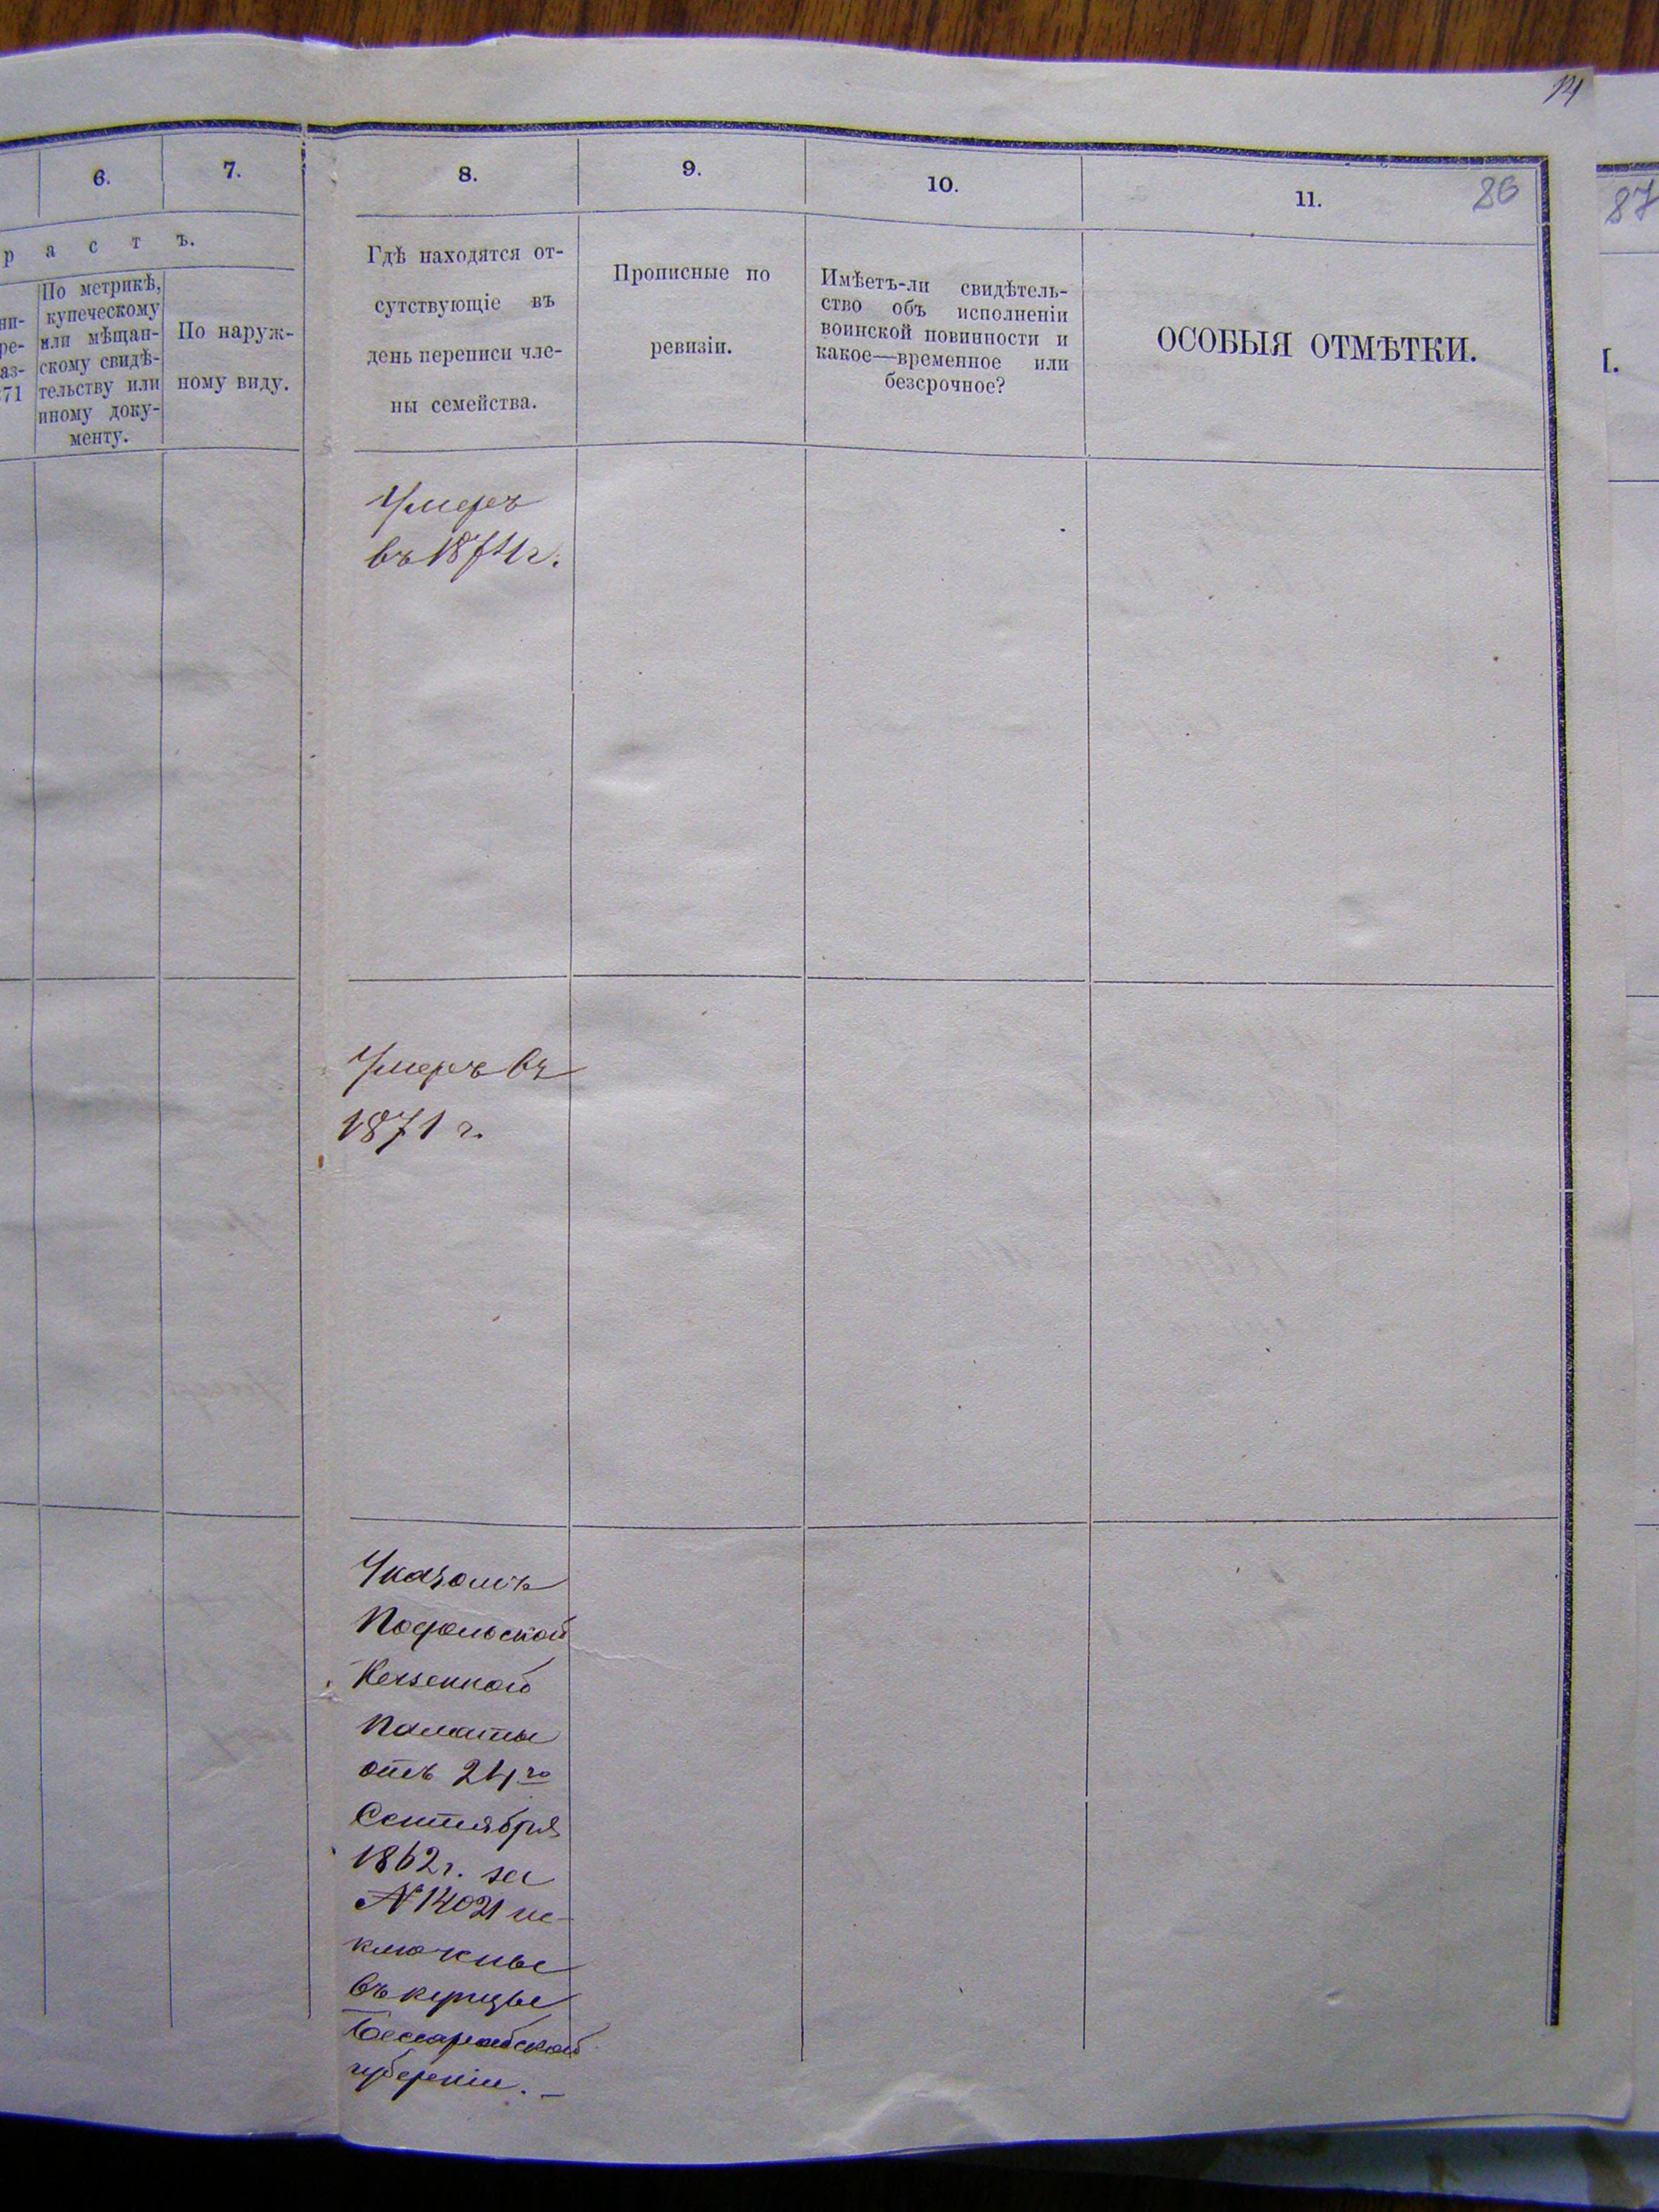 14
6.
7.
8.
9.
10.
11.
86
87
р а с т ъ.
ни-
ре-
аз-
71
По метрикѣ,
купеческому
или мѣщан-
скому свидѣ-
тельству или
иному доку-
менту.
По наруж-
ному виду.
Гдѣ находятся от-
сутствующіе въ
день переписи чле-
ны семейства.
Прописные по
ревизіи.
Имѣетъ-ли свидѣтель-
ство объ исполненіи
воинской повинности и
какое—временное или
безсрочное?
ОСОБЫЯ ОТМѢТКИ.
Умеръ
въ 1871 г.
Умеръ въ
1871 г.
Указомъ
Подольской
Казенной
Палаты
отъ 24го
Сентября
1862 г. за
№ 14021 ис-
ключены
въ купцы
Бессарабской
губерніи. –